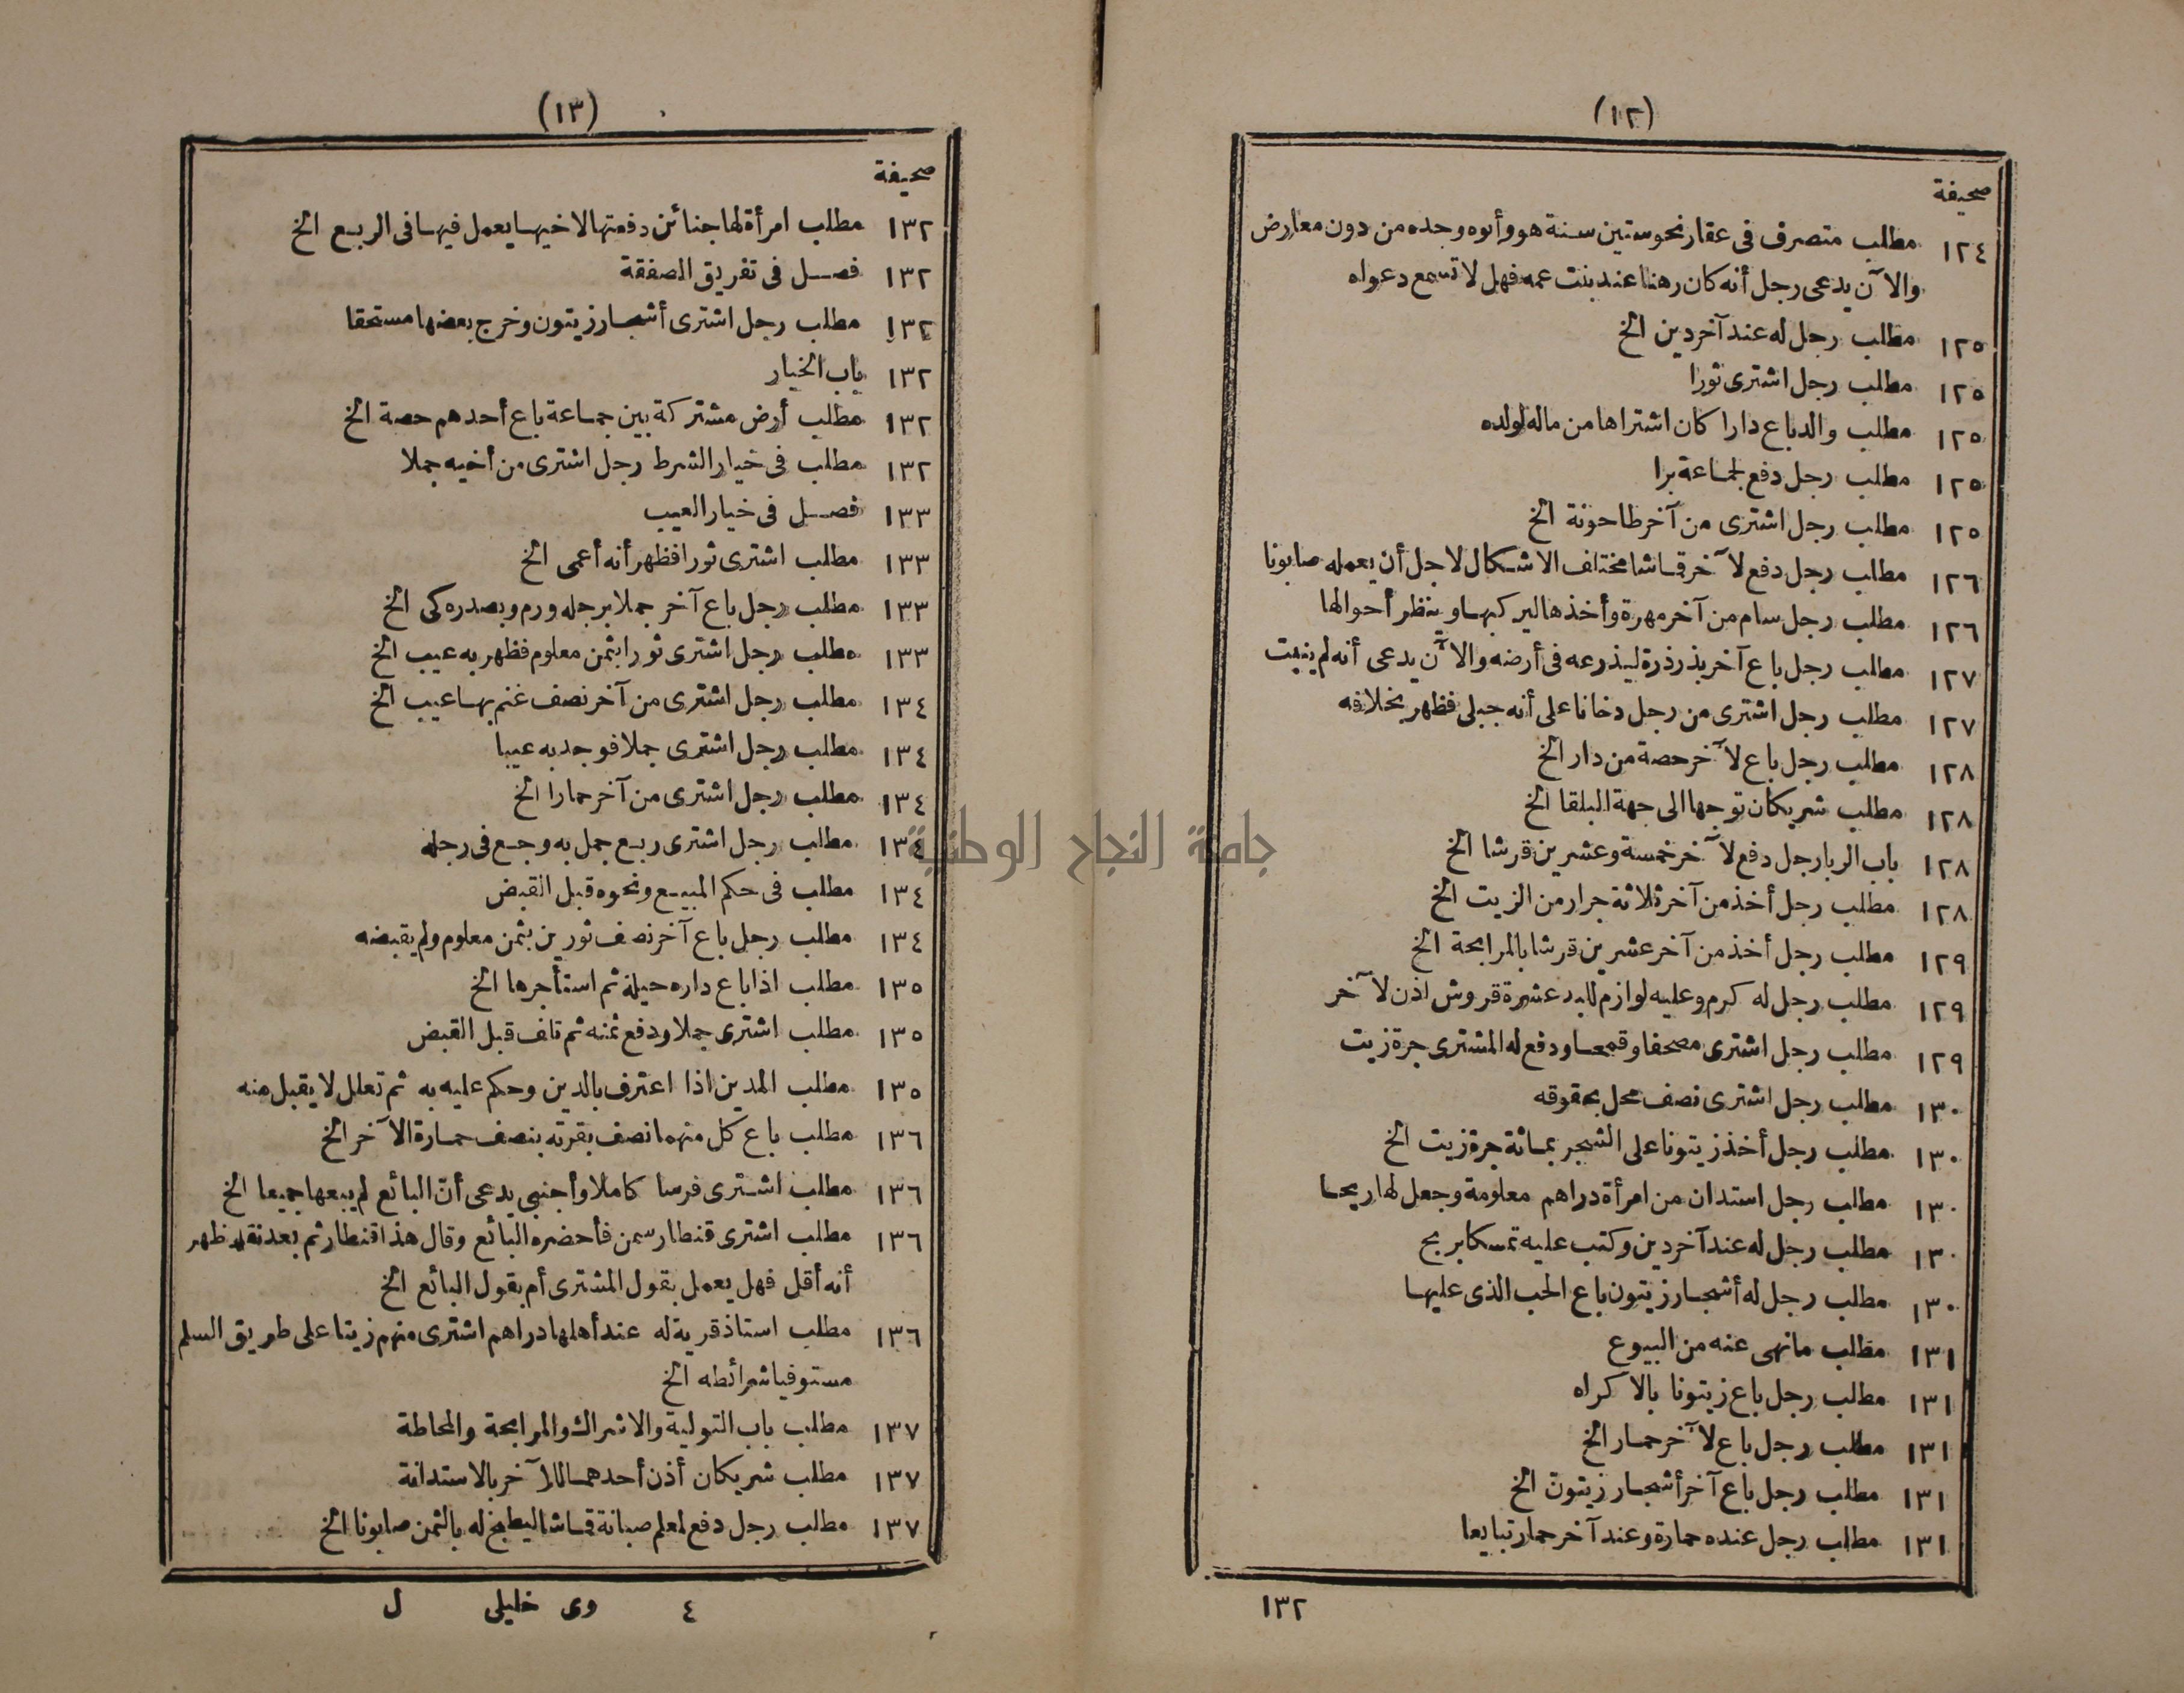 (١٢)
صحيفة
١٢٤ مطلب متصرف فى عقار نحو ستين سنة هو وأبوه وجده من دون معارض
والآن يدعى رجل أنه كان رهنا عند بنت عمه فهل لا تسمع دعواه
١٢٥ مطلب رجل له عند آخر دين الخ
١٢٥ مطلب رجل اشترى ثورا
١٢٥ مطلب والد باع دارا كان اشتراها من ماله لولده
١٢٥ مطلب رجل دفع لجماعة برا
١٢٥ مطلب رجل اشترى من آخر طاحونة الخ
١٢٦ مطلب رجل دفع لآخر قماشا مختلف الاشكال لاجل أن يعمله صابونا
١٢٦ مطلب رجل سام من آخر مهرة وأخذها ليركبها وينظر أحوالها
١٢٧ مطلب رجل باع آخر بذر ذرة ليذرعه فى أرضه والآن يدعى أنه لم ينبت
١٢٧ مطلب رجل اشترى من رجل دخانا على أنه جبلى فظهر بخلافه
١٢٨ مطلب رجل باع لآخر حصة من دار الخ
١٢٨ مطلب شريكان توجها الى جهة البلقا الخ
١٢٨ باب الربا رجل دفع لآخر خمسة وعشرين قرشا الخ
١٢٨ مطلب رجل أخذ من آخر ثلاثة جرار من الزيت الخ
١٢٩ مطلب رجل أخذ من آخر عشرين قرشا بالمرابحة الخ
١٢٩ مطلب رجل له كرم وعليه لوازم للبد عشرة قروش اذن لآخر
١٢٩ مطلب رجل اشترى مصحفا وقمعا ودفع له المشترى جرة زيت
١٣٠ مطلب رجل اشترى نصف محل بحقوقه
١٣٠ مطلب رجل أخذ زيتونا على الشجر بمائة جرة زيت الخ
١٣٠ مطلب رجل استدان من امرأة دراهم معلومة وجعل لها ربحا
١٣٠ مطلب رجل له عند آخر دين وكتب عليه تمسكا بربح
١٣٠ مطلب رجل له أشجار زيتون باع الحب الذى عليها
١٣١ مطلب ما نهى عنه من البيوع
١٣١ مطلب رجل باع زيتونا بالاكراه
١٣١ مطلب رجل باع لآخر حمار الخ
١٣١ مطلب رجل باع آخر أشجار زيتون الخ
١٣١ مطلب رجل عنده حمارة وعند آخر حمار تبايعا
١٣٢
(١٣)
صحيفة
١٣٢ مطلب امرأة لها جنائن دفعتها لاخيها يعمل فيها فى الربع الخ
١٣٢ فصل فى تفريق الصفقة
١٣٢ مطلب رجل اشترى أشجار زيتون وخرج بعضها مستحقا
١٣٢ باب الخيار
١٣٢ مطلب أرض مشتركة بين جماعة باع أحدهم حصة الخ
١٣٢ مطلب فى خيار الشرط رجل اشترى من أخيه جملا
١٣٣ فصل فى خيار العيب
١٣٣ مطلب اشترى ثورا فظهر أنه أعمى الخ
١٣٣ مطلب رجل باع آخر جملا برجله ورم وبصدره كى الخ
١٣٣ مطلب رجل اشترى ثورا بثمن معلوم فظهر به عيب الخ
١٣٤ مطلب رجل اشترى من آخر نصف غنم بها عيب الخ
١٣٤ مطلب رجل اشترى جملا فوجد به عيبا
١٣٤ مطلب رجل اشترى من آخر حمارا الخ
١٣٤ مطلب رجل اشترى ربع جمل به وجع فى رجله
١٣٤ مطلب فى حكم المبيع ونحوه قبل القبض
١٣٤ مطلب رجل باع آخر نصف ثورين بثمن معلوم ولم يقبضه
١٣٥ مطلب اذا باع داره حيلة ثم استأجرها الخ
١٣٥ مطلب اشترى جملا ودفع ثمنه ثم تلف قبل القبض
١٣٥ مطلب المدين اذا اعترف بالدين وحكم عليه به ثم تعلل لا يقبل منه
١٣٦ مطلب باع كل منهما نصف بقرته بنصف حمارة الآخر الخ
١٣٦ مطلب اشترى فرسا كاملا وأجنبي يدعى أن البائع لم يبعها جميعا الخ
١٣٦ مطلب اشترى قنطار سمن فأحضره البائع وقال هذا قنطار ثم بعد نقله ظهر
أنه أقل فهل يعمل بقول المشترى أم بقول البائع الخ
١٣٦ مطلب استاذ قرية له عند أهلها دراهم اشترى منهم زيتا على طريق السلم
مستوفيا شرائطه الخ
١٣٧ مطلب باب التولية والاشراك والمرابحة والمحاطة
١٣٧ مطلب شريكان أذن أحدهما للآخر بالاستدانة
١٣٧ مطلب رجل دفع لمعلم صبانة قماشا ليطبخ له بالثمن صابونا الخ
٤ وى خليلى ل
جامعة النجاح الوطنية